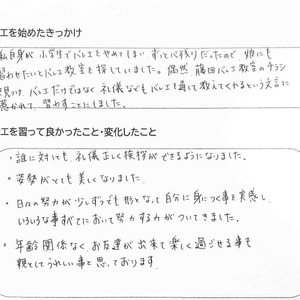 エを始めたきっかけ
私自身が小学生でバレエをやめてしまい ずっと心残りだったので 娘にも
習わせたいとバレエ教室を探していました。偶然 藤田バレエ教室のチラシ
見つけ バレエだけではなく 礼儀などもバレエを通して教えてくれるという文言に
惹かれて、習わすことにしました。
エを習って良かったこと・変化したこと
・誰に対しても、礼儀正しく挨拶ができるようになりました。
・姿勢がとても美しくなりました。
・日々の努力が少しずつでも形となって自分に身につく事を実感し
いろいろな事すべてにおいて努力する力がついてきました。
・年齢関係なく お友達が出来て楽しく過ごせる事も
親としてうれしい事と思っております